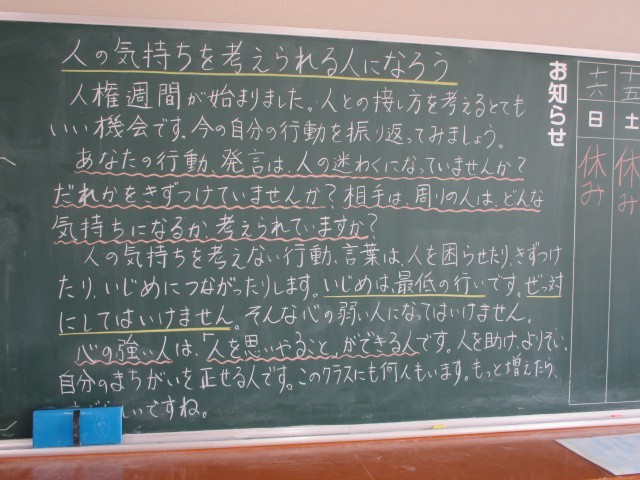 人の気持ちを考えられる人になろう
人権週間が始まりました。人との接し方を考えるとても
いい機会です。今の自分の行動を振り返ってみましょう。
あなたの行動、発言は、人の迷わくになっていませんか?
だれかをきずつけていませんか?相手は、周りの人は、どんな
気持ちになるか、考えられていますか?
人の気持ちを考えない行動、言葉は、人を困らせたり、きずつけ
たり、いじめにつながったりします。いじめは、最低の行いです。ぜっ対
にしてはいけません。そんな心の弱い人になってはいけません。
心の強い人は、「人を思いやること」ができる人です。人を助け、よりそい、
自分のまちがいを正せる人です。このクラスにも何人もいます。もっと増えたら、
いですね。
お知らせ
十六
日
休み
十五
土
休み